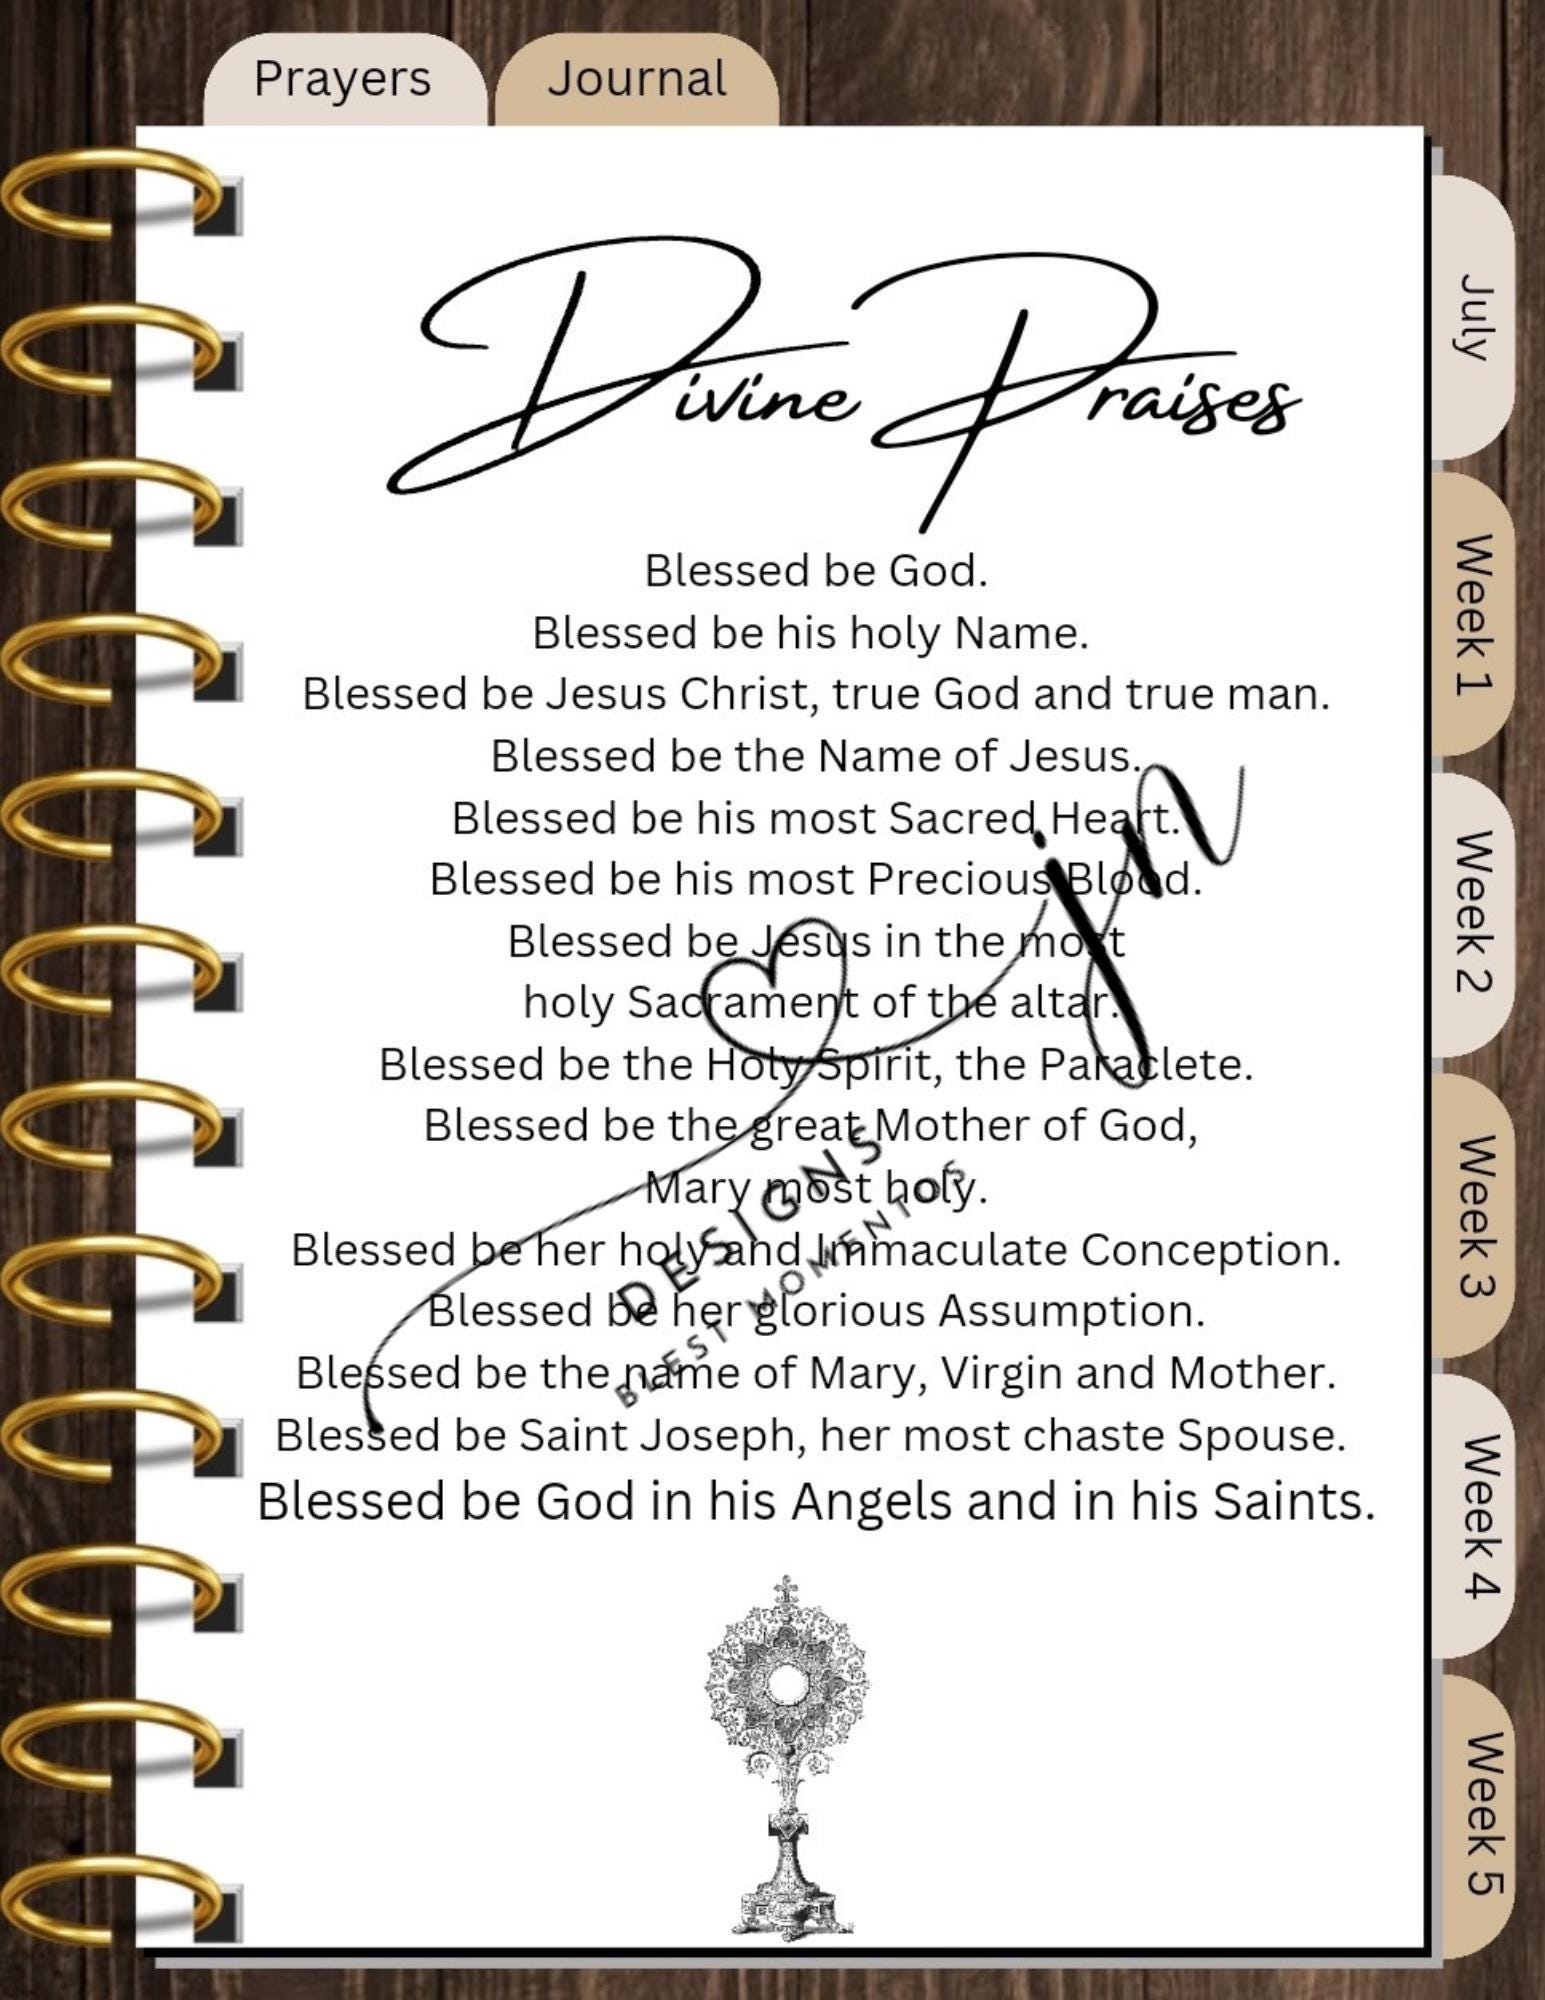 Prayers
Journal
Divine Praises
Blessed be God.
Blessed be his holy Name.
Blessed be Jesus Christ, true God and true man.
Blessed be the Name of Jesus.
Blessed be his most Sacred Heart.
Blessed be his most Precious Blood.
Blessed be Jesus in the most
holy Sacrament of the altar.
Blessed be the Holy Spirit, the Paraclete.
Blessed be the great Mother of God,
Mary most holy.
Blessed be her holy and Immaculate Conception.
Blessed be her glorious Assumption.
Blessed be the name of Mary, Virgin and Mother.
Blessed be Saint Joseph, her most chaste Spouse.
Blessed be God in his Angels and in his Saints.
jn
DESIGNS
BLEST MOMENTOS
July
Week 1
Week 2
Week 3
Week 4
Week 5